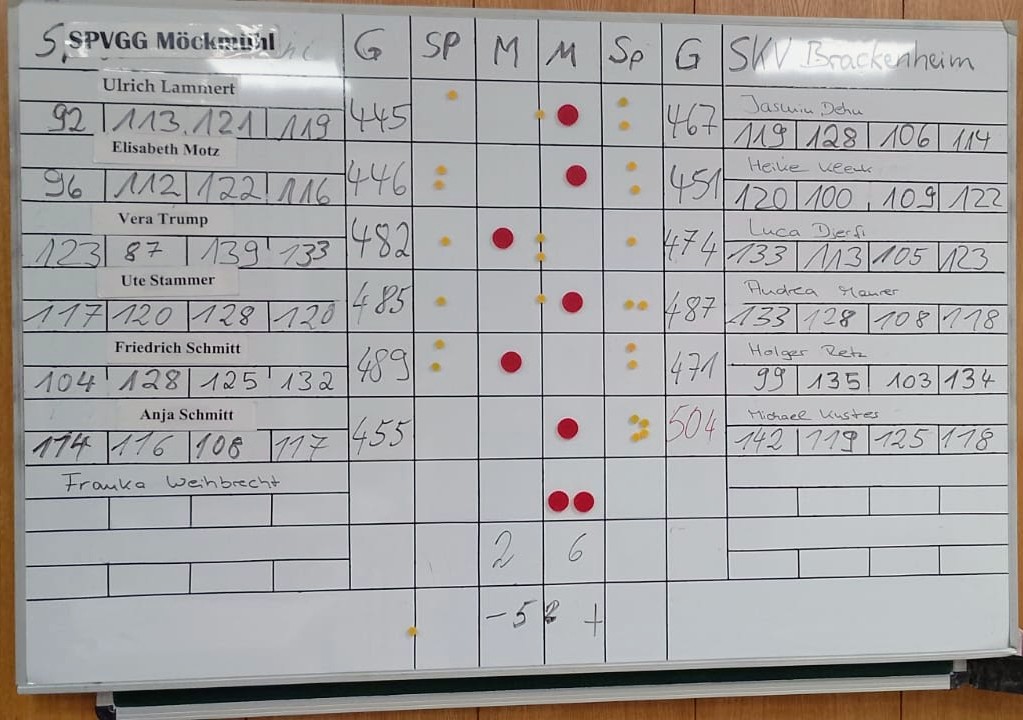 SPVGG Möckmühl G SP M M Sp G SKV Brackenheim
Ulrich Lammert 445 467 Jasmin Dehn
92 113 121 119 119 128 106 114
Elisabeth Motz 446 451 Heike
96 112 122 116 120 100 109 122
Vera Trump 482 474 Luca
123 87 139 133 133 113 105 123
Ute Stammer 485 487 Andrea Maurer
117 120 128 120 133 128 108 118
Friedrich Schmitt 489 471 Holger Retz
104 128 125 132 99 135 103 134
Anja Schmitt 455 504 Michael Kuster
114 116 108 117 142 119 125 118
Franka Weihbrecht
2 6
- 52 +